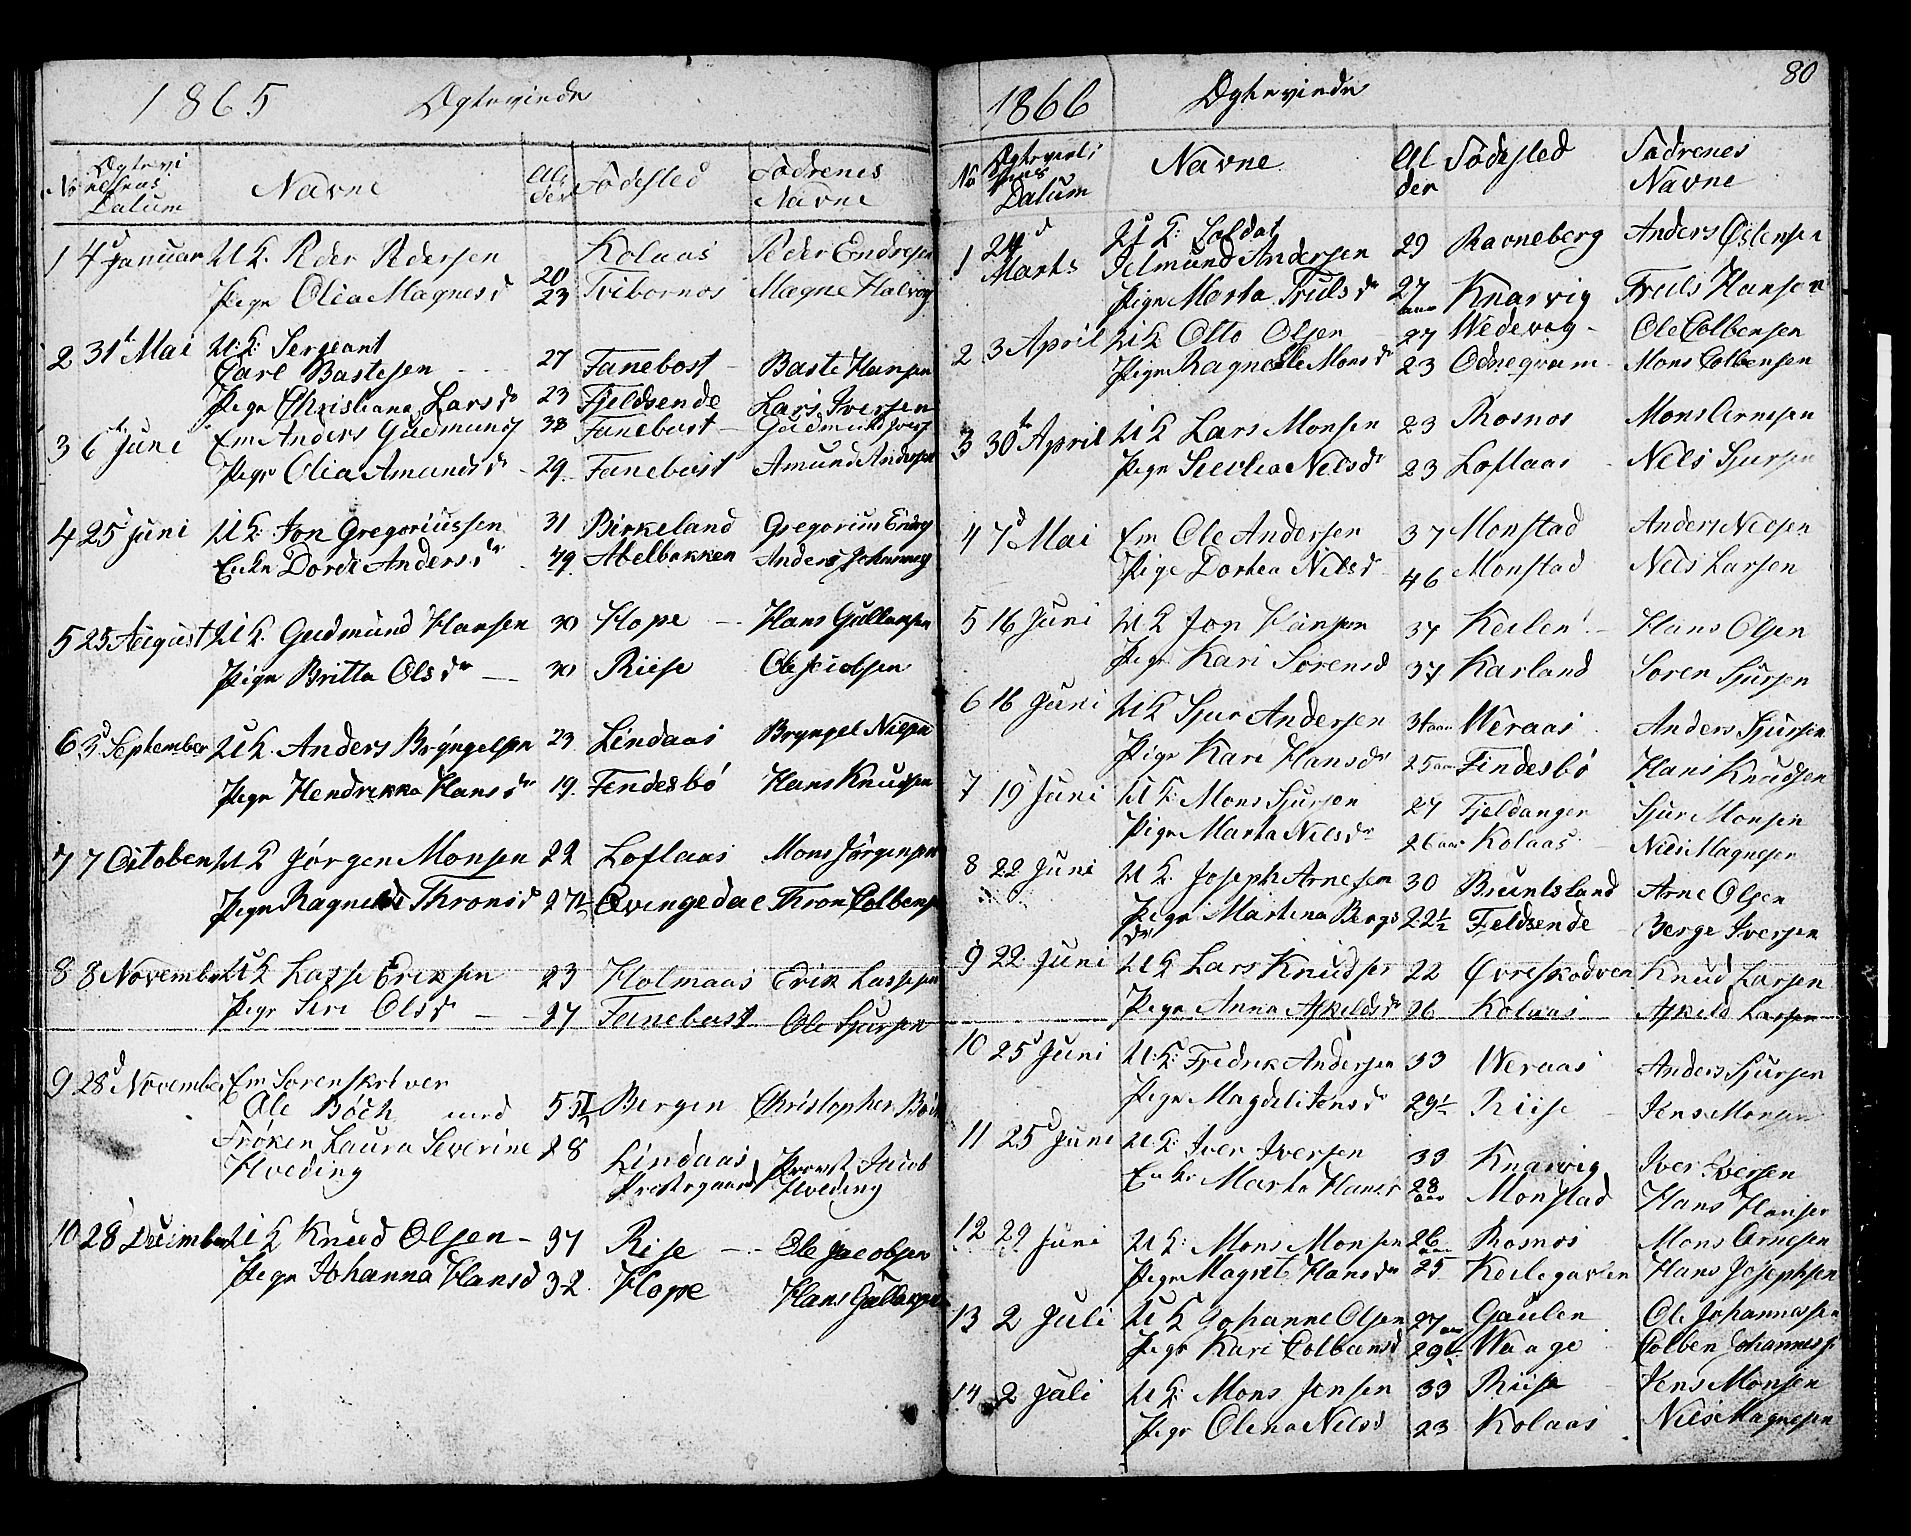 1865 Ægtevirde
No Ægtevielsens Datum Navne Alder Fødested Fædrenes Navne
1 4d Januar U K. Peder Pedersen 20 Kolaas Peder Endresen
Pige Olia Magnesd 23 Tvibornos Magne Halvog
2 31te Mai U: K: Sergeant
Carl Bastesen 27 Fanebost Baste Hansen
Pige Christiana Larsdr 23 Fjeldsende Lars Iversen
3 6te Juni Em Anders Gudmunds 38 Fanebost Gudmund Ivers
Pige Olia Amundsdr 29 Fanebost Amund Andersen
4 25d Juni U K: Jon Gregoriussen 31 Birkeland Gregorius
Enke Dordi Andersdr 49 Abelbakken Anders Johannes
5 25 August U K. Gudmund Hansen 30 Hope Hans Gullaksen
Pige Britta Olsdr 30 Riise Ole Jacobsen
6 3d September U K. Anders Bryngelsen 23 Lindaas Bryngel Nilsen
Pige Hendrikka Hansdr 19 Fendesbö Hans Knudsen
7 7 October U K Jørgen Monsen 22 Loflaas Mons Jørgensen
Pige Ragnilde Thronsd 27½ Qvingedal Thron Colbens
8 8 November U K Lasse Eriksen 23 Holmaas Erik Lassesen
Pige Siri Olsdr 27 Fanebust Ole Sjursen
9 28d November Em Sorenskriver
Ole Böch med 55½ Bergen Christopher Böch
Frøken Laura Severine 28 Lindaas Provst Jacob
Hveding Prestegaard Hveding
10 28 December U K Knud Olsen 37 Rise Ole Jacobsen
Pige Johanna Hansd 32 Hope Hans Gullaksen
80
1866 Ægtevirde
No Ægtevielsens Datum Navne Alder Fødested Fædrenes Navne
1 24d Marts U K: Soldat
Jelmund Andersen 29 Ravneberg Anders Østensen
Pige Marta Trulsdr 27 aar Knarvig Truls Hansen
2 3 April U K Otto Olsen 27 Wedevog Ole Colbensen
Pige Ragnele Monsdr 23 Odnegram Mons Colbensen
3 30te April U K Lars Monsen 23 Rosnos Mons Arnesen
Pige Sievlea Nilsdr 23 Loflaas Nils Sjursen
4 7d Mai Em Ole Andersen 37 Monstad Anders Nilsen
Pige Dorthea Nilsd 46 Monstad Nils Larsen
5 16 Juni U K Jon Hansen 37 Keilen Hans Olsen
Pige Kari Sørensd 37 Karland Soren Sjursen
6 16 Juni U K Sjur Andersen 31 aar Weraas Anders Sjursen
Pige Kari Hansdr 25 aar Findesbö Hans Knudsen
7 19 Juni U K: Mons Sjursen 27 Fjeldanger Sjur Monsen
Pige Marta Nilsdr 26 aar Kolaas Nils Magnesen
8 22 Juni U K. Joseph Arnesen 30 Bruntsland Arne Olsen
Pige Martina Bergsdr 22½ Feldsende Berge Iversen
9 22 Juni U K Lars Knudsen 22 Øvreskodven Knud Larsen
Pige Anna Askeldsdr 26 Kolaas Askeld Larsen
10 25d Juni U: K: Fredrik Andersen 33 Weraas Anders Sjursen
Pige Magdeli Jensdr 29½ Riise Jens Monsen
11 25d Juni U: K: Iver Iversen 33 Knarvig Iver Iversen
Enke Marta Hansd 28 aar Monstad Hans Hansen
12 29 Juni U K: Mons Monsen 26 aar Rosnos Mons Arnesen
Pige Magret Hansdr 25 Keilegavlen Hans Josephsen
13 2 Juli U K Johanne Olsen 27 aar Gaulen Ole Johannesen
Pige Kari Colbensd 29½ Waage Colben Johannes
14 2 Juli U K: Mons Jensen 33 Riise Jens Monsen
Pige Olena Nilsd 23 Kolaas Nils Magnesen